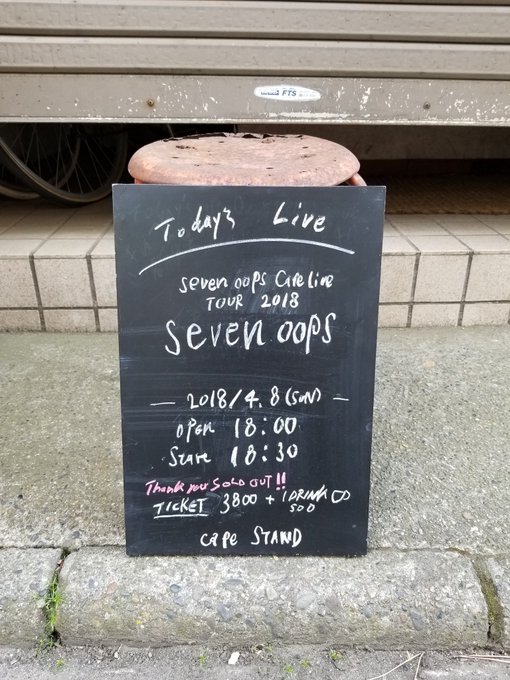 FTS
Today's Live
seven oops Cafe Live
TOUR 2018
seven oops
— 2018/4.8 (SUN) —
open 18:00
Start 18:30
Thank you SOLD OUT!!
TICKET 3800 + 1DRINK
500
CAFE STAND